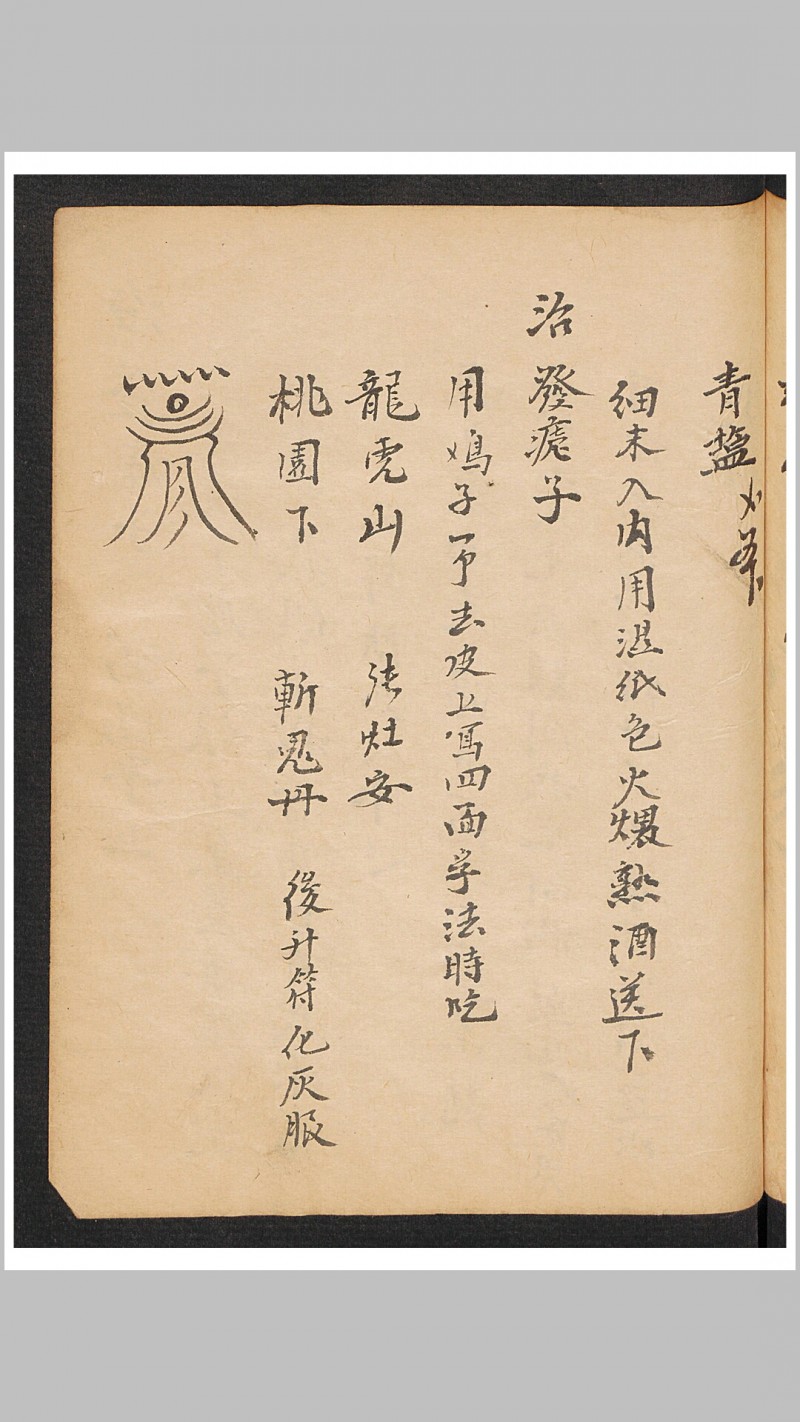 青盐
細末入內用湿紙色火煨熟酒送下
治發瘧子
用鳮子一个去皮上寫四面字法時吃
龍虎山 張灶安
桃園下 斬鬼丹 後升符化灰服